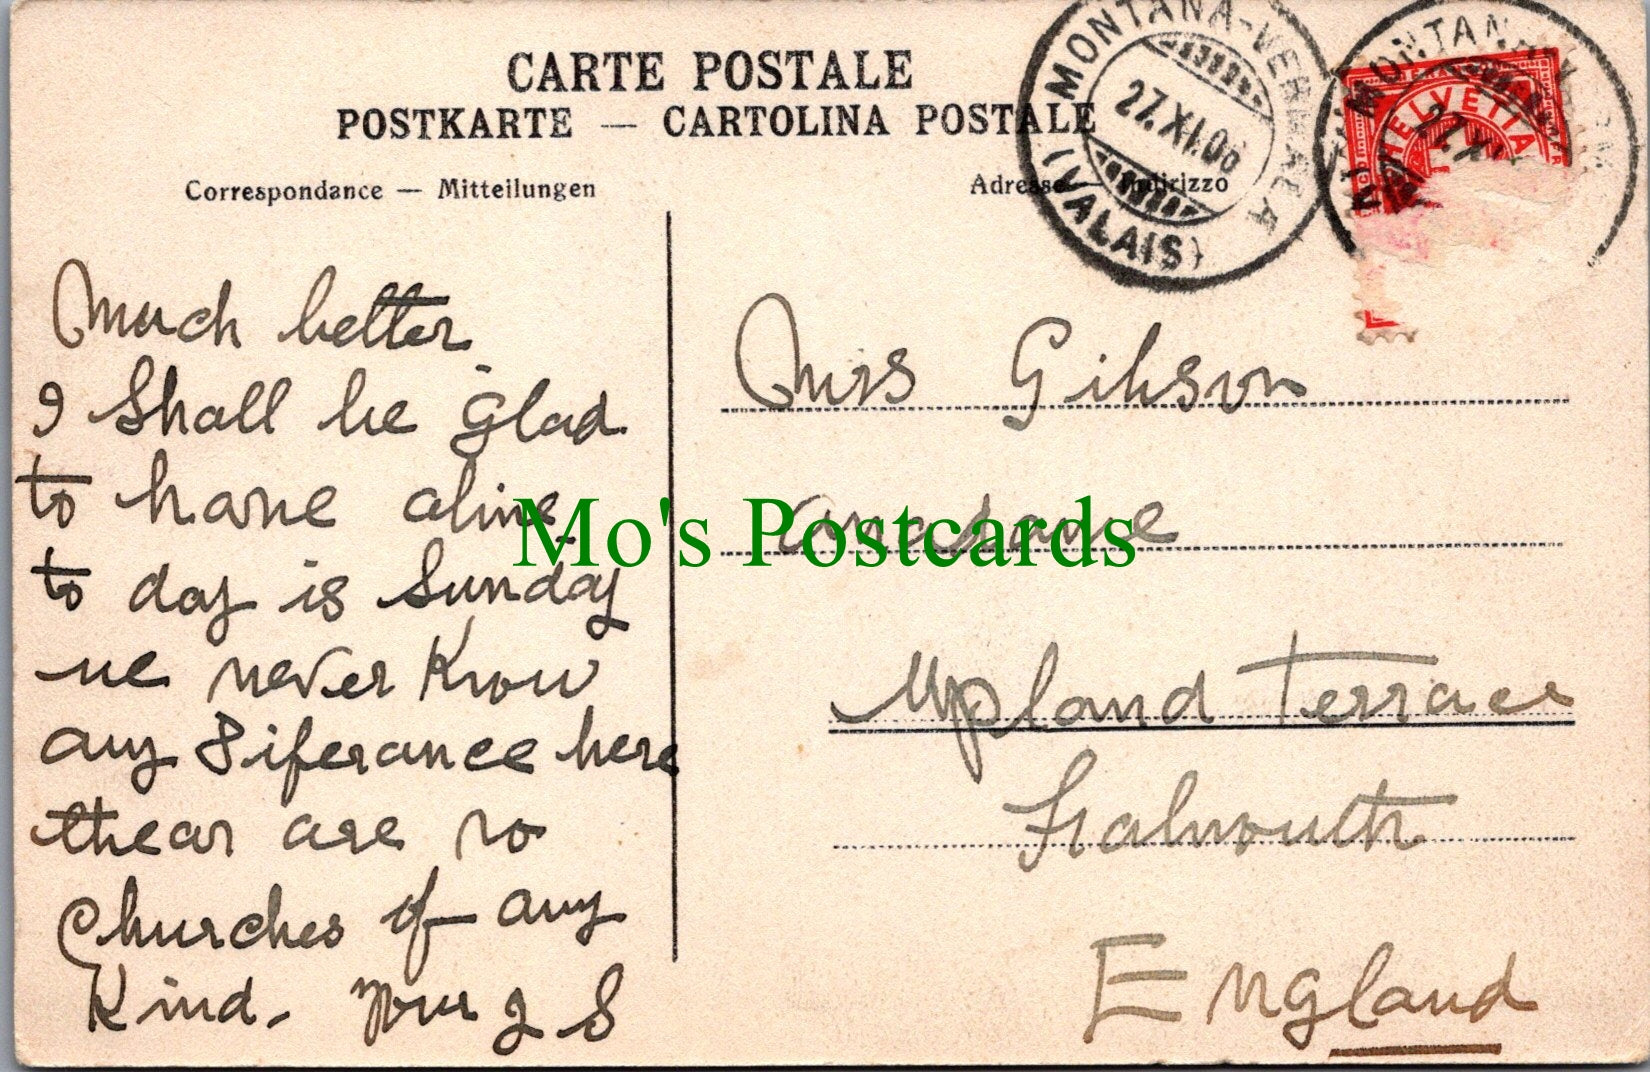 CARTE POSTALE
POSTKARTE — CARTOLINA POSTALE
Correspondance — Mitteilungen
Adresse — Indirizzo
MONTANA-VERMALA
27.XI.06
(VALAIS)
MONTANA
27.XI
HELVETIA
10
Much better
I Shall be Glad
to have aline
to day is Sunday
we never Know
any Diferance here
thear are no
Churches of any
Kind. Your J S
Mrs Gibson
Mo's Postcards
Upland Terrace
Falmouth
England